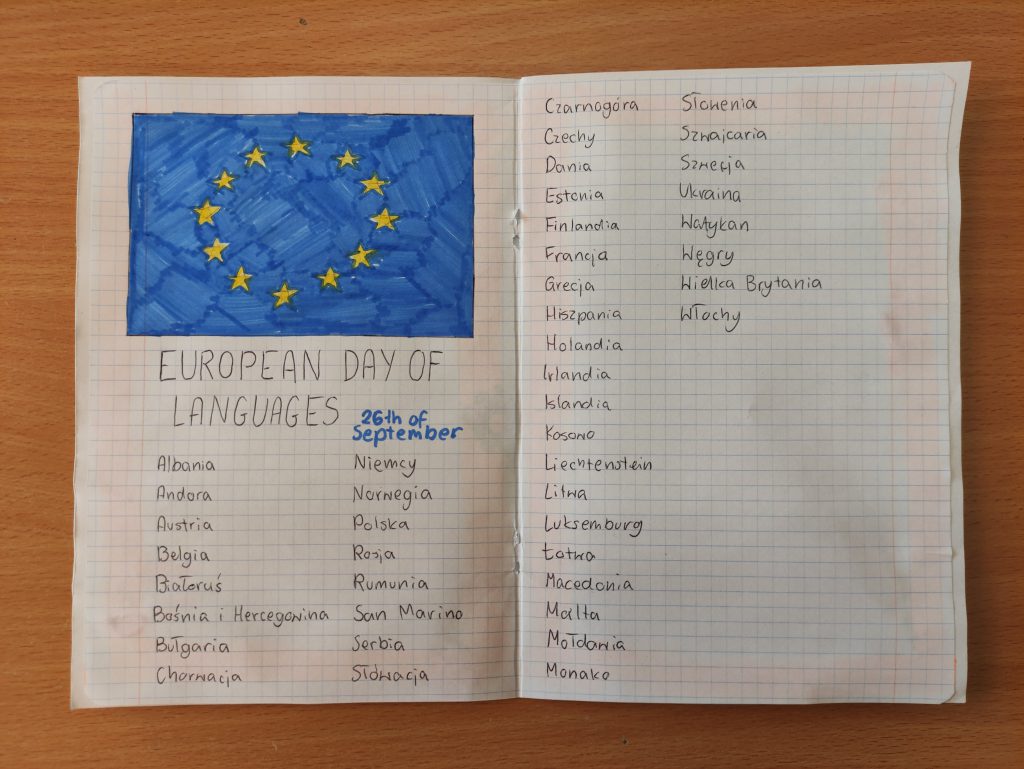 EUROPEAN DAY OF
LANGUAGES
26th of
September
Albania
Andora
Austria
Belgia
Białoruś
Bośnia i Hercegowina
Bułgaria
Chorwacja
Niemcy
Norwegia
Polska
Rosja
Rumunia
San Marino
Serbia
Słowacja
Czarnogóra
Czechy
Dania
Estonia
Finlandia
Francja
Grecja
Hiszpania
Holandia
Irlandia
Islandia
Kosowo
Liechtenstein
Litwa
Luksemburg
Łotwa
Macedonia
Malta
Mołdawia
Monako
Słowenia
Szwajcaria
Szwecja
Ukraina
Watykan
Węgry
Wielka Brytania
Włochy